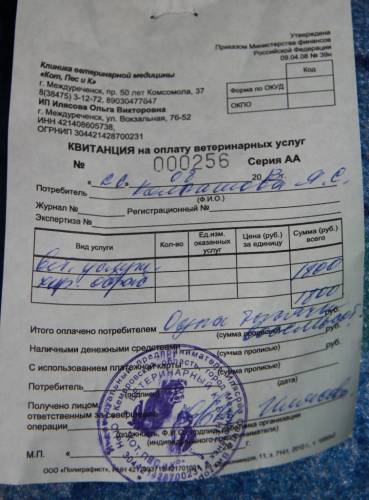 Утверждена
Приказом Министерства финансов
Российской Федерации
09.04.08 № 39н
Клиника ветеринарной медицины
«Кот, Пес и К»
г. Междуреченск, пр. 50 лет Комсомола, 37
8(38475) 3-12-72, 89030477647
ИП Илясова Ольга Викторовна
г. Междуреченск, ул. Вокзальная, 76-52
ИНН 421408605738,
ОГРНИП 304421428700231
Код
Форма по ОКУД
ОКПО
КВИТАНЦИЯ на оплату ветеринарных услуг
№ 000256 Серия АА
Потребитель
(Ф.И.О.)
Журнал № Регистрационный №
Экспертиза №
Вид услуги Кол-во Ед.изм. оказанных услуг Цена (руб.) за единицу Сумма (руб.) всего
вет. услуги 1800
1800
Итого оплачено потребителем Одна тысяча восемьсот руб.
(сумма прописью)
Наличными денежными средствами руб.
(сумма прописью)
С использованием платежной карты руб.
(сумма прописью)
Потребитель
(подпись) (дата)
Получено лицом
ответственным за совершение
операции
(должность, Ф.И.О.
(индивидуального предпринимателя)
М.П.
ООО «Полиграфист»